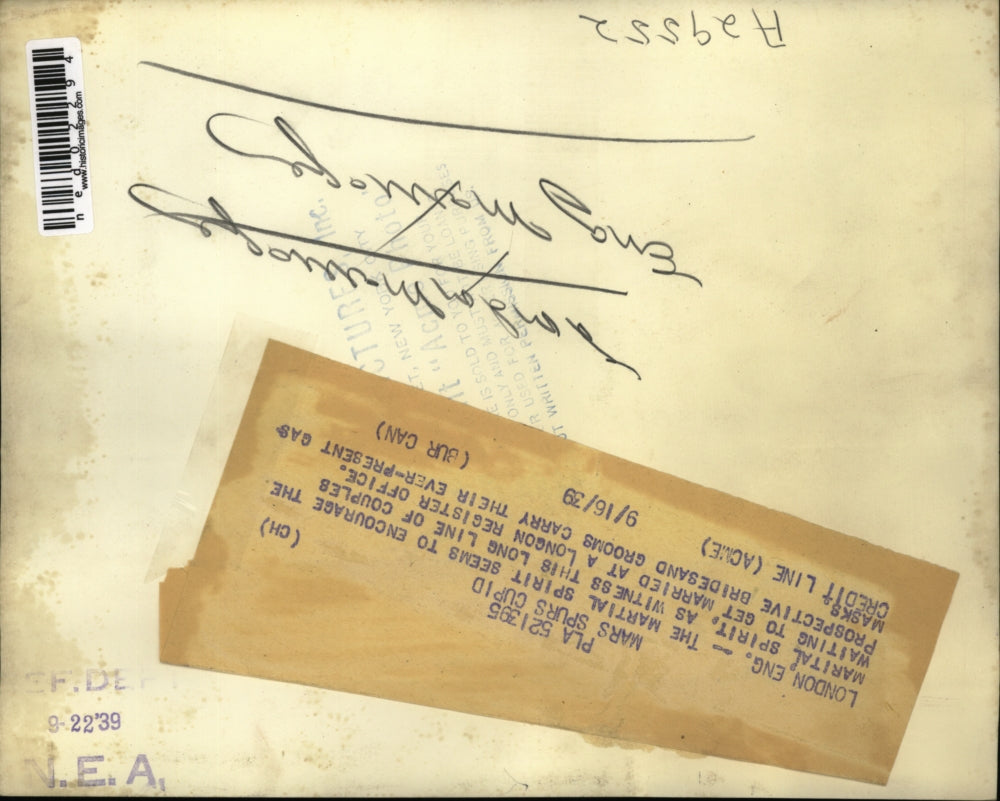 A29552
Eng Marriage
London Marriage
ned02294
www.historicimages.com
CTURES, Inc.
ET, NEW YORK CITY
it "ACME Photo"
E IS SOLD TO YOU FOR YOUR
ONLY AND MUST NOT BE LOANED
R USED FOR
T WRITTEN PERMISSION FROM
PLA 521395
MARS SPURS CUPID
LONDON, ENG. -- THE MARTIAL SPIRIT SEEMS TO ENCOURAGE THE
MARITAL SPIRIT. AS WITNESS THIS LONG LINE OF COUPLES
WAITING TO GET MARRIED AT A LONGON REGISTER OFFICE.
PROSPECTIVE BRIDESAND GROOMS CARRY THEIR EVER-PRESENT GAS
MASKS.
CREDIT LINE (ACME) 9/16/39 (BUR CAN)
(CH)
EF. DEPT
9-22'39
N.E.A.